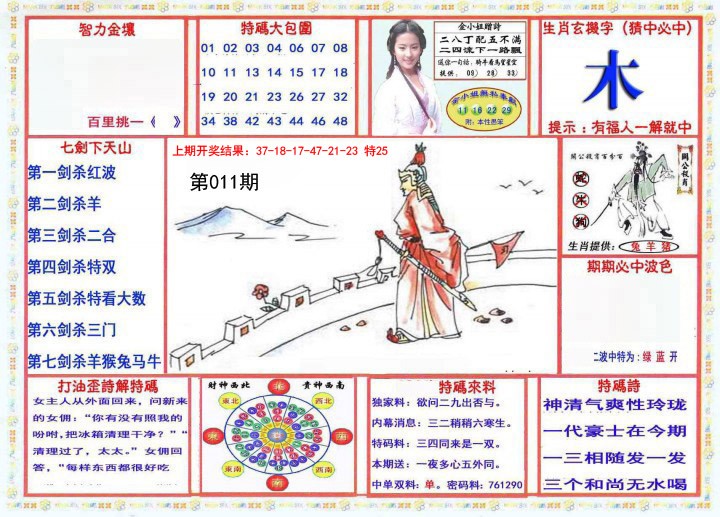 智力金壤
百里挑一《　》
特碼大包圍
01 02 03 04 06 07 08
10 11 13 14 15 17 18
19 20 21 23 26 27 32
34 38 42 43 44 46 48
金小姐贈詩
二八丁配五不满
二四谏下一路飘
提供：09）28）33）
11 16 22 29
附：本性愚笨
生肖玄搬字（猜中必中）
木
提示：有福人一解就中
七劍下天山
第一剑杀红波
第二剑杀羊
第三剑杀二合
第四剑杀特双
第五剑杀特看大数
第六剑杀三门
第七剑杀羊猴兔马牛
上期开奖结果：37-18-17-47-21-23 特25
第011期
刃
關公殺肖
生肖提供：兔羊猪
期期必中波色
二波中特为：绿 蓝 开
打油歪詩解特碼
女主人从外面回来，问新来
的女佣：“你有没有照我的
吩咐,把冰箱清理干净？”“
清理过了，太太。”女佣回
答，“每样东西都很好吃
財神西北 貴神西南
東北 北 西北
東南 西南
特碼來料
独家料：欲问二九出否与。
内幕消息：三二稍稍六寒生。
特码料：三四同来是一双。
本期送：一夜多心五外同。
中单双料：单。密码料：761290
特碼詩
神清气爽性玲珑
一代豪士在今期
一三相随发一发
三个和尚无水喝